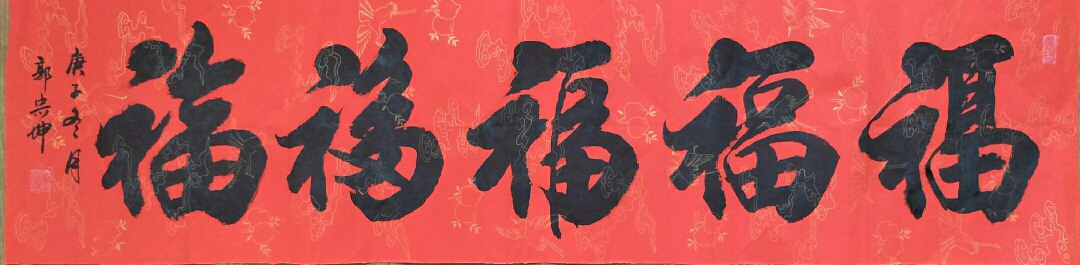 福福福福福
庚子冬月
郭宗坤